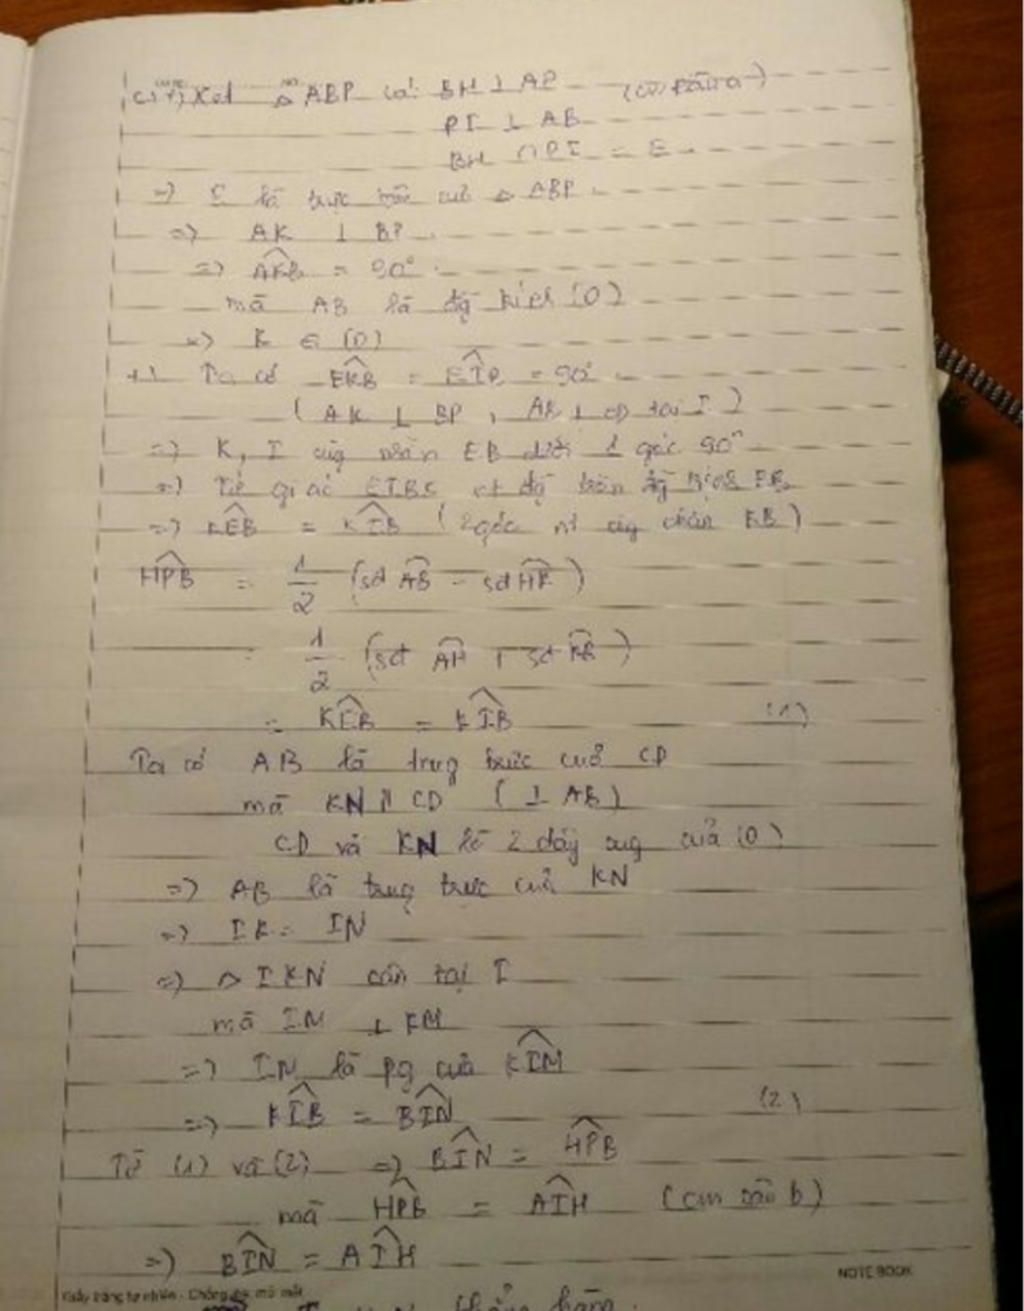 c) +) Xét △ ABP có: BH ⊥ AP (cm câu a)
PI ⊥ AB
BH ∩ PI = E
=> E là trực tâm của △ ABP.
=> AK ⊥ BP.
=> AKB = 90°.
mà AB là đg kính (O)
=> K ∈ (O)
+) Ta có EKB = EIB = 90°
( AK ⊥ BP, AB ⊥ CD tại I )
=> K, I cùg nhìn EB dưới 1 góc 90°
=> Tứ giác EIBK nt đg tròn đg kính EB
=> KEB = KIB ( 2 góc nt cùg chắn KB )
HPB = 1/2 (sđ AB - sđ HK )
= 1/2 (sđ AH + sđ KB )
= KEB = KIB (1)
Ta có AB là trug trực của CD
mà KN // CD ( ⊥ AB )
CD và KN là 2 dây cug của (O)
=> AB là trug trực của KN
=> IK = IN
=> △ IKN cân tại I
mà IM ⊥ KM
=> IM là pg của KIM
=> KIB = BIN (2)
Từ (1) và (2) => BIN = HPB
mà HPB = AIH (cm câu b)
=> BIN = AIH
Giấy trắng tự nhiên - Chống mỏi mắt
NOTE BOOK
thẳng hàng.